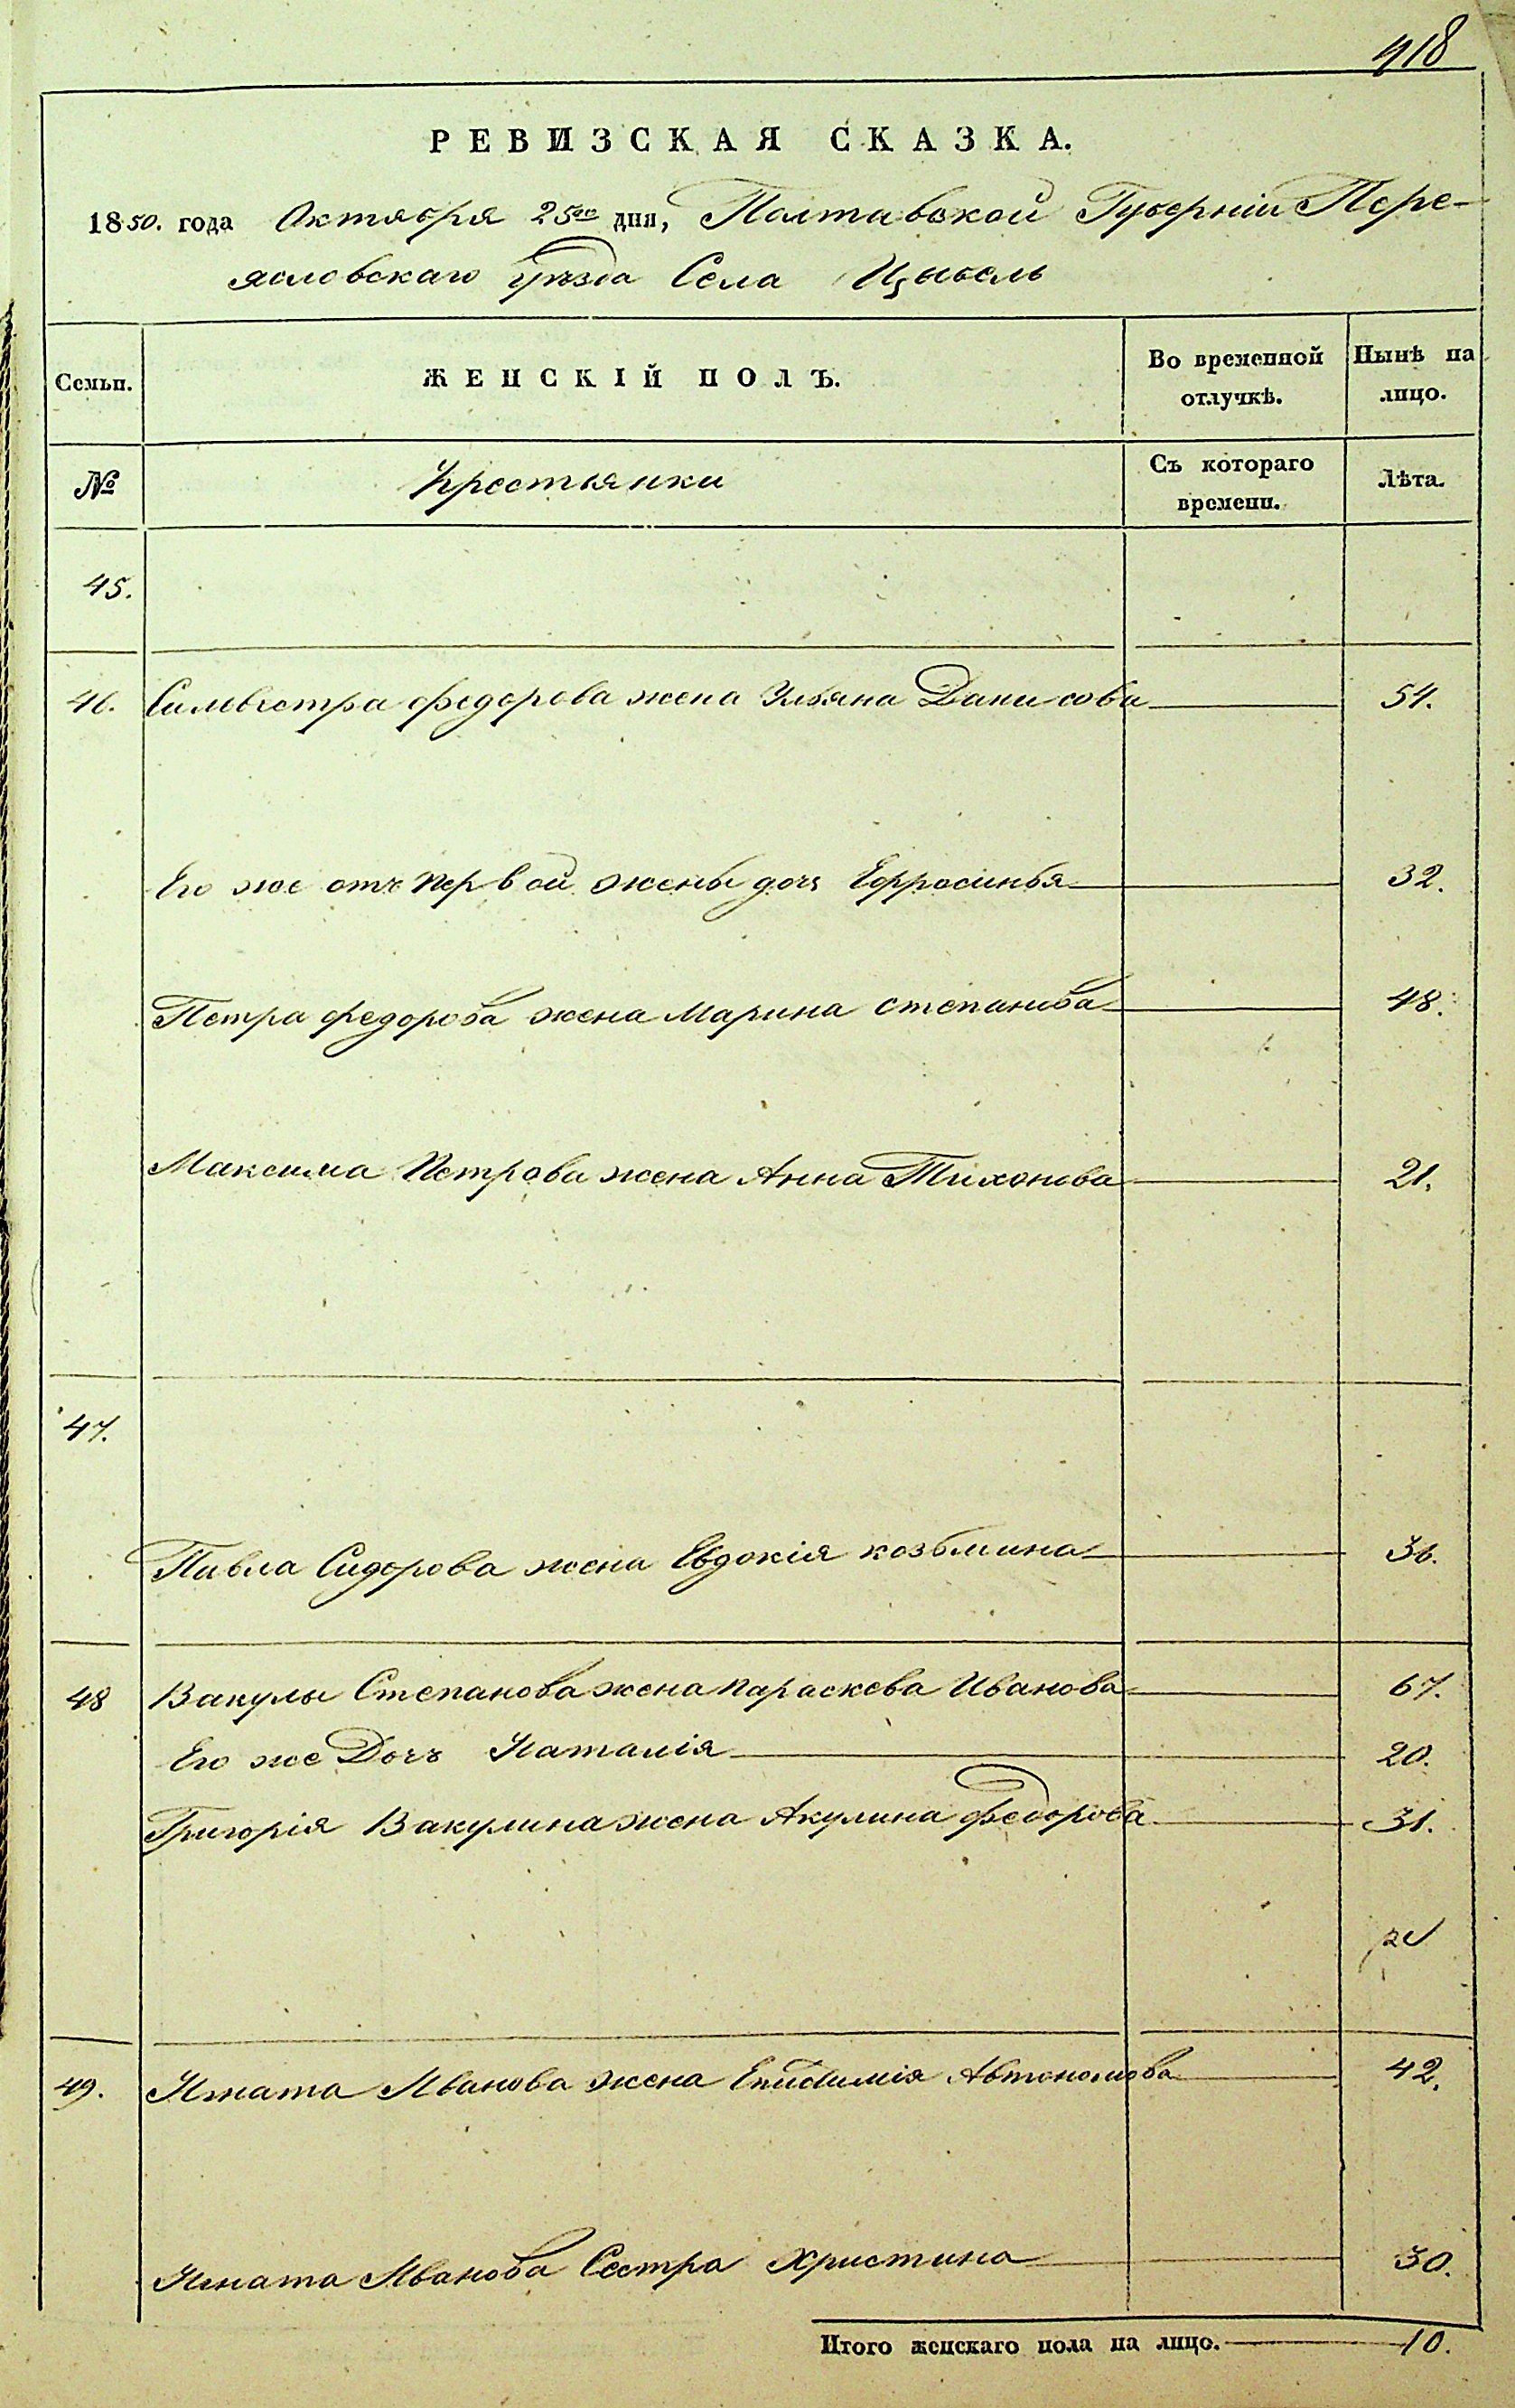 918
РЕВИЗСКАЯ СКАЗКА.
1850. года Октября 25го дня, Полтавской Губерніи Пере-
яславскаго уѣзда Села Цыбель
Семьи. ЖЕНСКІЙ ПОЛЪ. Во временной отлучкѣ. Нынѣ на лицо.
№ Крестьянки Съ котораго времени. Лѣта.
45.
46. Силвестра Федорова жена Ульяна Данилова 54.
Его же отъ первой жены дочь Ефросинья 32.
Петра Федорова жена Марина Степанова 48.
Максима Петрова жена Анна Тихонова 21.
47.
Павла Сидорова жена Евдокія Козьмина 36.
48 Вакулы Степанова жена Параскева Иванова 67.
Его же Дочь Наталія 20.
Григорія Вакулина жена Акулина Федорова 31.
49. Игната Иванова жена Автономова 42.
Игната Иванова Сестра Христина 30.
Итого женскаго пола на лицо. 10.